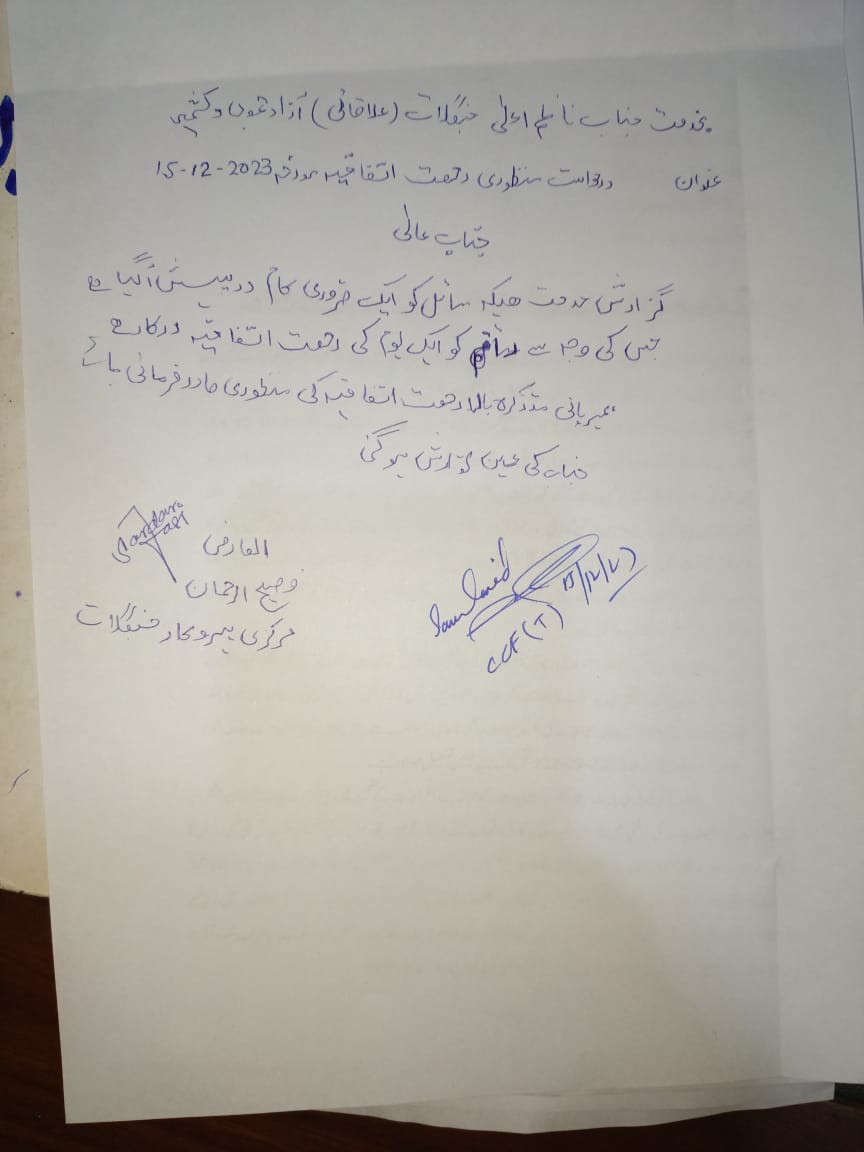 بخدمت جناب ناظم اعلیٰ جنگلات (علاقائی) آزاد جموں و کشمیر
عنوان درخواست منظوری رخصت اتفاقیہ مورخہ 15-12-2023
جناب عالی
گزارش خدمت ھیکہ سائل کو ایک ضروری کام درپیش آگیا ہے
جس کی وجہ سے کو ایک یوم کی رخصت اتفاقیہ درکار ہے
مہربانی متذکرہ بالا رخصت اتفاقیہ کی منظوری صادر فرمائی جائے
جناب کی عین نوازش ہو گئی
العارض
فصیح الرحمان
مرکزی پیروکار جنگلات
CCF (T) 15/12/23